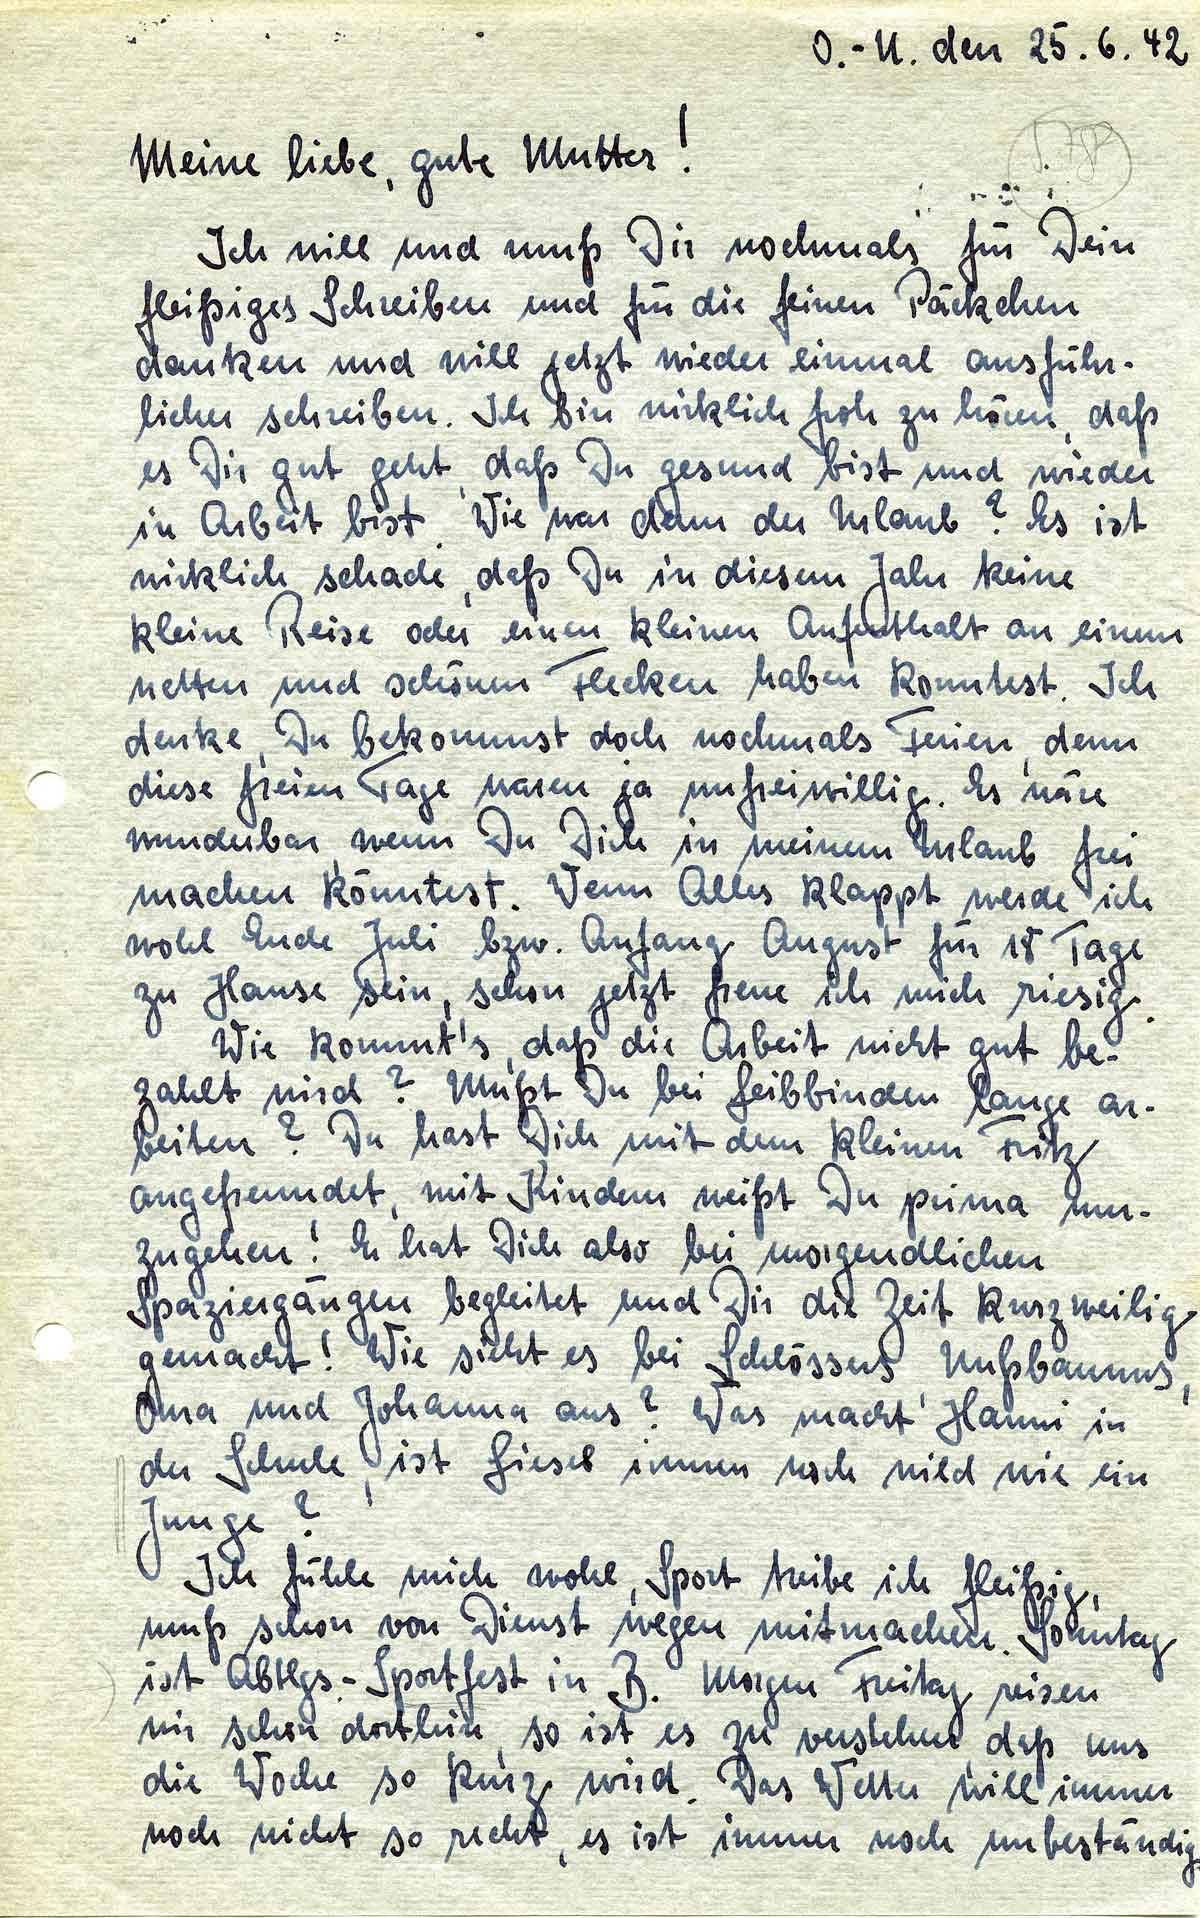 O.-U. den 25.6.42
Meine liebe, gute Mutter!
Ich will und muß Dir nochmals für Dein
fleißiges Schreiben und für die feinen Päckchen
danken und will jetzt wieder einmal ausführ-
licher schreiben. Ich bin wirklich froh zu hören, daß
es Dir gut geht, daß Du gesund bist und wieder
in Arbeit bist. Wie war denn der Urlaub? Es ist
wirklich schade, daß Du in diesem Jahr keine
kleine Reise oder einen kleinen Aufenthalt an einem
netten und schönen Flecken haben konntest. Ich
denke, Du bekommst doch nochmals Ferien, denn
diese freien Tage waren ja unfreiwillig. Es wäre
wunderbar, wenn Du Dich in meinem Urlaub frei
machen könntest. Wenn Alles klappt werde ich
wohl Ende Juli bzw. Anfang August für 18 Tage
zu Hause sein, schon jetzt freue ich mich riesig.
Wie kommt's, daß die Arbeit nicht gut be-
zahlt wird? Mußt Du bei Leibbinden lange ar-
beiten? Du hast Dich mit dem kleinen Fritz
angefreundet, mit Kindern weißt Du prima um-
zugehen! Er hat Dich also bei morgendlichen
Spaziergängen begleitet und Dir die Zeit kurzweilig
gemacht! Wie sieht es bei Schlössers Nußbaums,
Oma und Johanna aus? Was macht Hanni in
der Schule, ist Liesel immer noch wild wie ein
Junge?
Ich fühle mich wohl, Sport treibe ich fleißig,
muß schon von Dienst wegen mitmachen. Sonntag
ist Abtlgs.-Sportfest in B. Morgen Freitag reisen
wir schon dorthin, so ist es zu verstehen, daß uns
die Woche so kurz wird. Das Wetter will immer
noch nicht so recht, es ist immer noch unbeständig